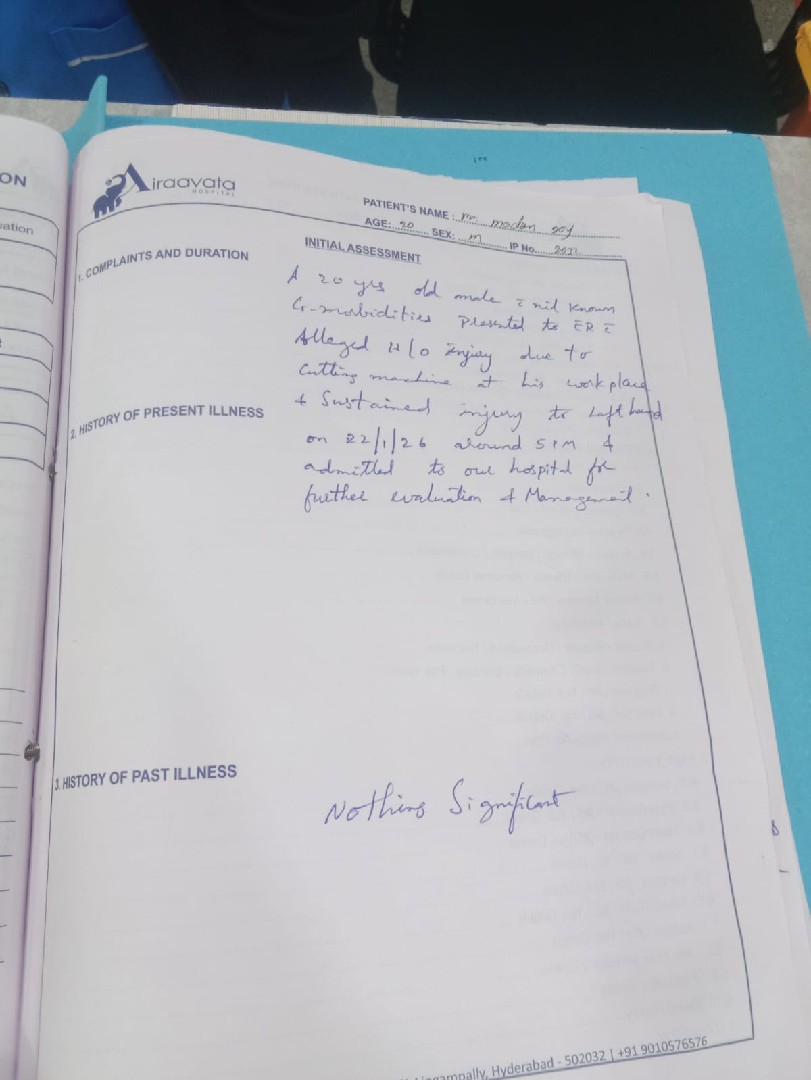 ON
ation
Airaavata
HOSPITAL
PATIENT'S NAME : Mr. madan goy
AGE: 20 SEX: m IP No.
INITIAL ASSESSMENT
1. COMPLAINTS AND DURATION
A 20 yrs old male c̄ nil known
Co-morbidities Presented to ER c̄
Alleged H/O Injury due to
Cutting machine at his workplace
& Sustained injury to Left hand
on 22/1/26 around 5 PM &
admitted to our hospital for
further evaluation & Management.
2. HISTORY OF PRESENT ILLNESS
3. HISTORY OF PAST ILLNESS
Nothing Significant
Lingampally, Hyderabad - 502032 | +91 9010576576